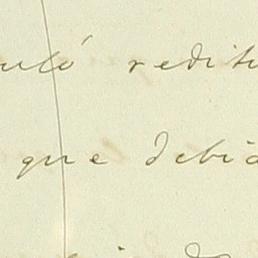 uló reditu
que debia